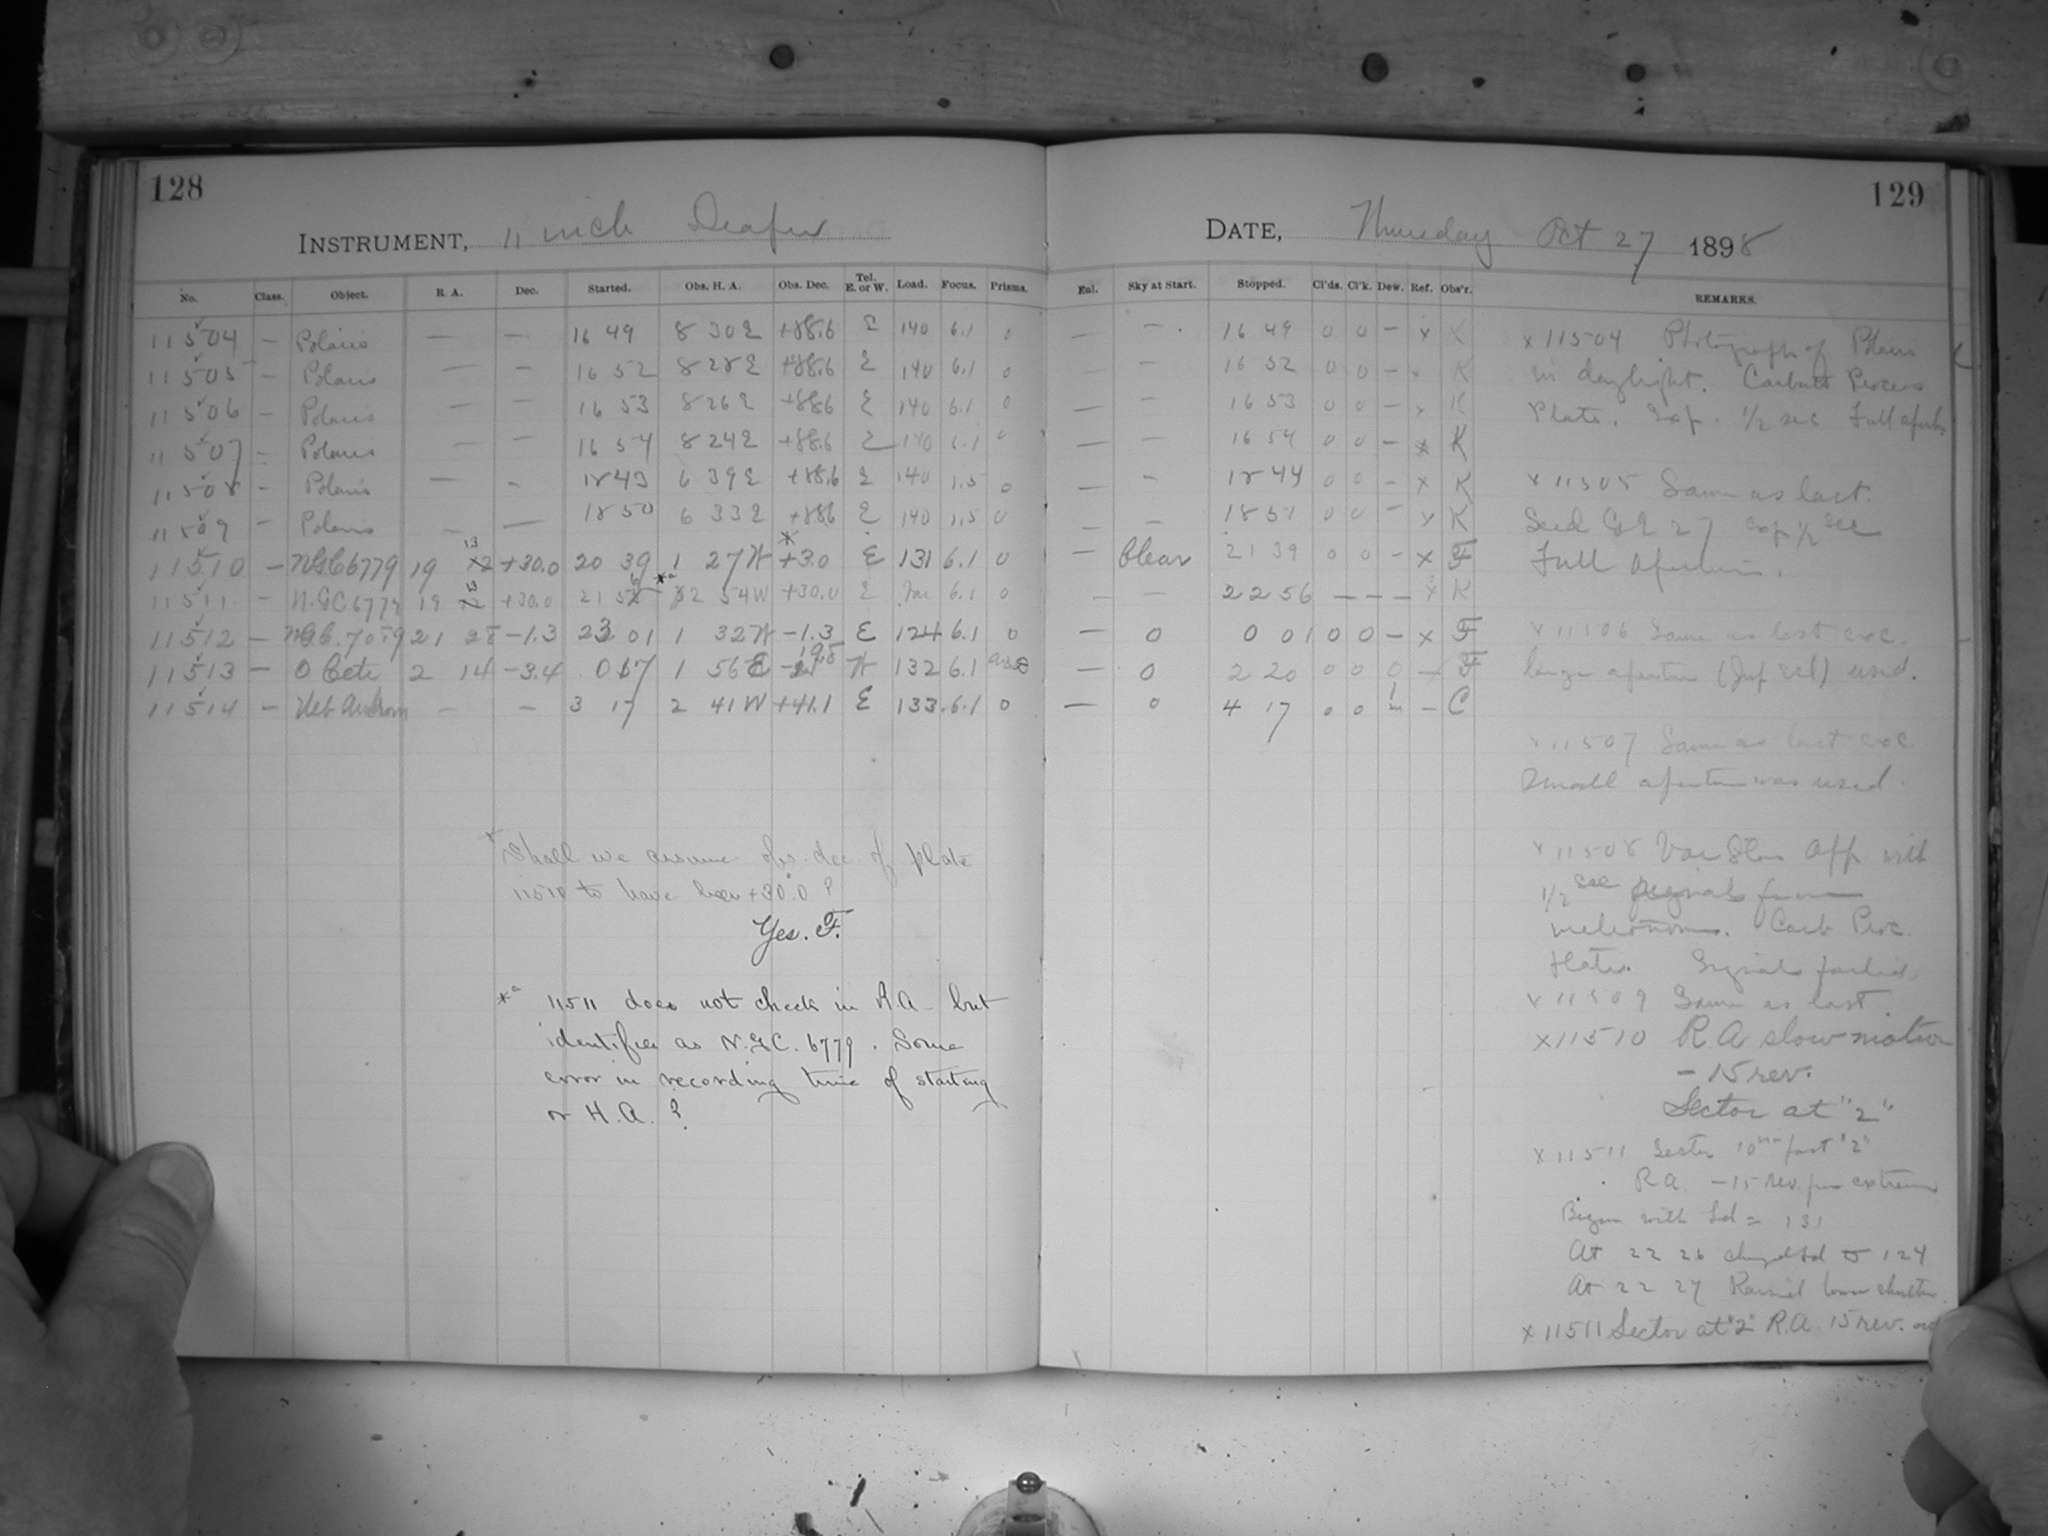 128
INSTRUMENT, 11 inch Draper
No. Class. Object. R. A. Dec. Started. Obs. H. A. Obs. Dec. Tel. E. or W. Load. Focus. Prisms.
11504 — Polaris — — 16 49 8 30 E +88.6 E 140 6.1 0
11505 — Polaris — — 16 52 8 28 E +88.6 E 140 6.1 0
11506 — Polaris — — 16 53 8 26 E +88.6 E 140 6.1 0
11507 — Polaris — — 16 54 8 24 E +88.6 E 140 6.1 0
11508 — Polaris — — 18 43 6 39 E +88.6 E 140 1.5 0
11509 — Polaris — — 18 50 6 33 E +88.6 E 140 1.5 0
11510 — NGC 6779 19 13 +30.0 20 39 1 27 W * +3.0 E 131 6.1 0
11511 — N.G.C 6779 19 13 +30.0 21 56 *a 2 54 W +30.0 E Var 6.1 0
11512 — NGC. 7089 21 28 -1.3 23 01 1 32 W -1.3 E 124 6.1 0
11513 — O Ceti 2 14 -3.4 0 17 1 56 E W 132 6.1
11514 — Neb Androm — — 3 17 2 41 W +41.1 E 133 6.1 0
* Shall we assume obs. dec. of plate
11510 to have been +30.0?
Yes. F.
*a 11511 does not check in R.A. but
identifies as N.G.C. 6779. Some
error in recording time of starting
or H.A.?
129
DATE, Thursday Oct 27 1898
Eal. Sky at Start. Stopped. Cl'ds. Cl'k. Dew. Ref. Obs'r. REMARKS.
— — 16 49 0 0 — x K
— — 16 52 0 0 — x K
— — 16 53 0 0 — x K
— — 16 54 0 0 — x K
— — 18 44 0 0 — x K
— — 18 51 0 0 — x K
— Clear 21 39 0 0 — x F
— — 22 56 — — — x K
— 0 0 01 0 0 — x F
— 0 2 20 0 0 0 — F
— 0 4 17 0 0 — C
x 11504 Photograph of Polaris
in daylight. Carbutt Process
Plate. Exp. 1/2 sec Full apert.
x 11505 Same as last.
Seed G E 27 exp 1/2 sec
Full aperture.
x 11506 Same as last exc.
large aperture used.
x 11507 Same as last exc
small aperture was used.
x 11508 Var Star App. with
1/2 sec signals from
metronome. Carb Proc.
Plates. Signals failed.
x 11509 Same as last.
x 11510 R A slow motion
- 15 rev.
Sector at "2"
x 11511 Sector 10 fast "2"
R.A. -15 rev. from extreme
Began with Ld = 131
At 22 26 changed Ld to 124
At 22 27 Raised lower shutter.
x 11511 Sector at "2" R.A. 15 rev.